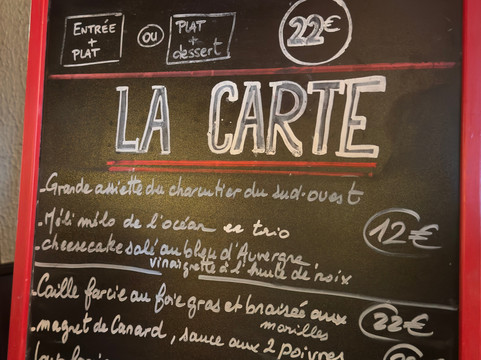 ENTRÉE + PLAT OU PLAT + dessert 22€
LA CARTE
-Grande assiette du charcutier du sud-ouest
-Méli mélo de l'océan en trio 12€
-cheesecake salé au bleu d'Auvergne,
vinaigrette à l'huile de noix
-Caille farcie au foie gras et braisée aux
morilles 22€
-magret de Canard, sauce aux 2 poivres